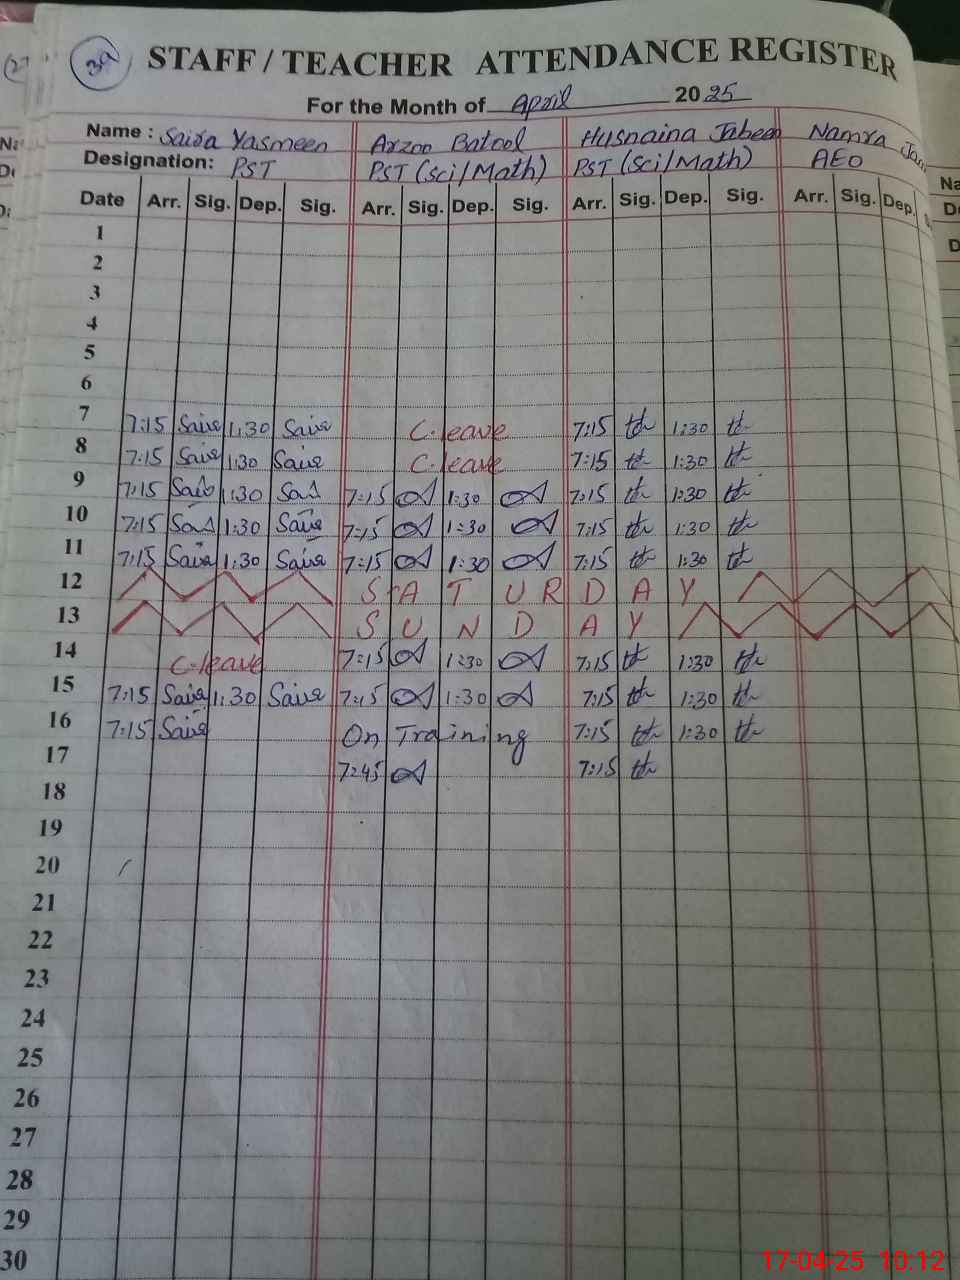 39
STAFF / TEACHER ATTENDANCE REGISTER
For the Month of April 2025
Name : Saira Yasmeen Arzoo Batool Husnaina Jabeen Namra
Designation: PST PST (Sci/Math) PST (Sci/Math) AEO
Date Arr. Sig. Dep. Sig. Arr. Sig. Dep. Sig. Arr. Sig. Dep. Sig. Arr. Sig. Dep.
1
2
3
4
5
6
7 7:15 Saira 1:30 Saira C.leave 7:15 1:30
8 7:15 Saira 1:30 Saira C.leave 7:15 1:30
9 7:15 1:30 7:15 1:30 7:15 1:30
10 7:15 1:30 Saira 7:15 1:30 7:15 1:30
11 7:15 Saira 1:30 Saira 7:15 1:30 7:15 1:30
12 SATURDAY
13 SUNDAY
14 C.leave 7:15 1:30 7:15 1:30
15 7:15 Saira 1:30 Saira 7:15 1:30 7:15 1:30
16 7:15 Saira On Training 7:15 1:30
17 7:45 7:15
18
19
20
21
22
23
24
25
26
27
28
29
30
17-04-25 10:12